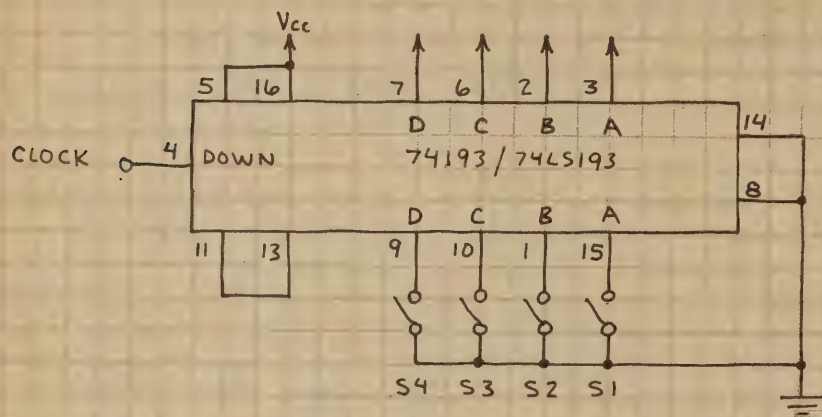 Vcc
5 16 7 6 2 3
D C B A 14
CLOCK 4 DOWN 74193/74LS193
8
D C B A
11 13 9 10 1 15
S4 S3 S2 S1